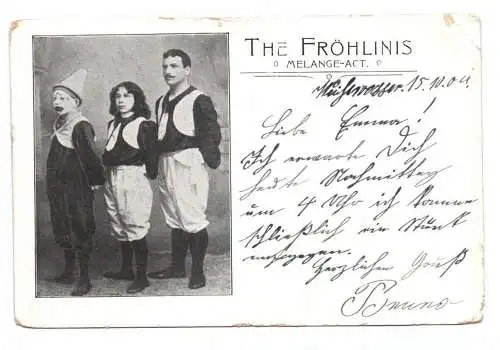 THE FRÖHLINIS
MELANGE-ACT.
Weißwasser 15.10.04
Liebe Emma!
Ich erwarte Dich
heute Nachmittag
um 4 Uhr ich komme
schließlich ein Stück
entgegen.
Herzlichen Gruß
Bruno